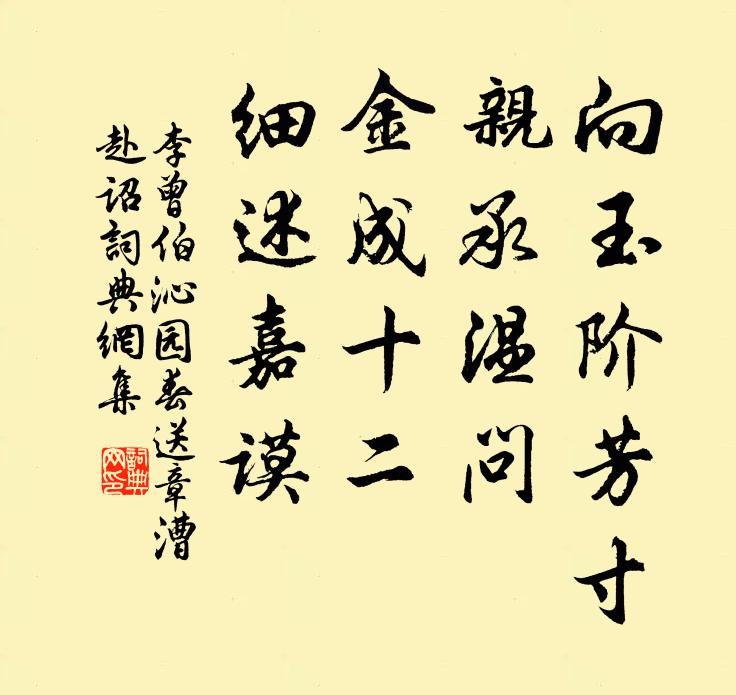 向玉阶芳寸
親承温问
金成十二
细述嘉谟
李曾伯沁园春送章漕
赴诏詞典網集
詞典网印